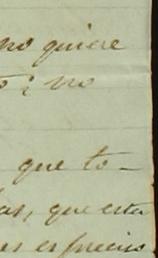 no quiere
; no
que to-
as, que esta
es es preciso